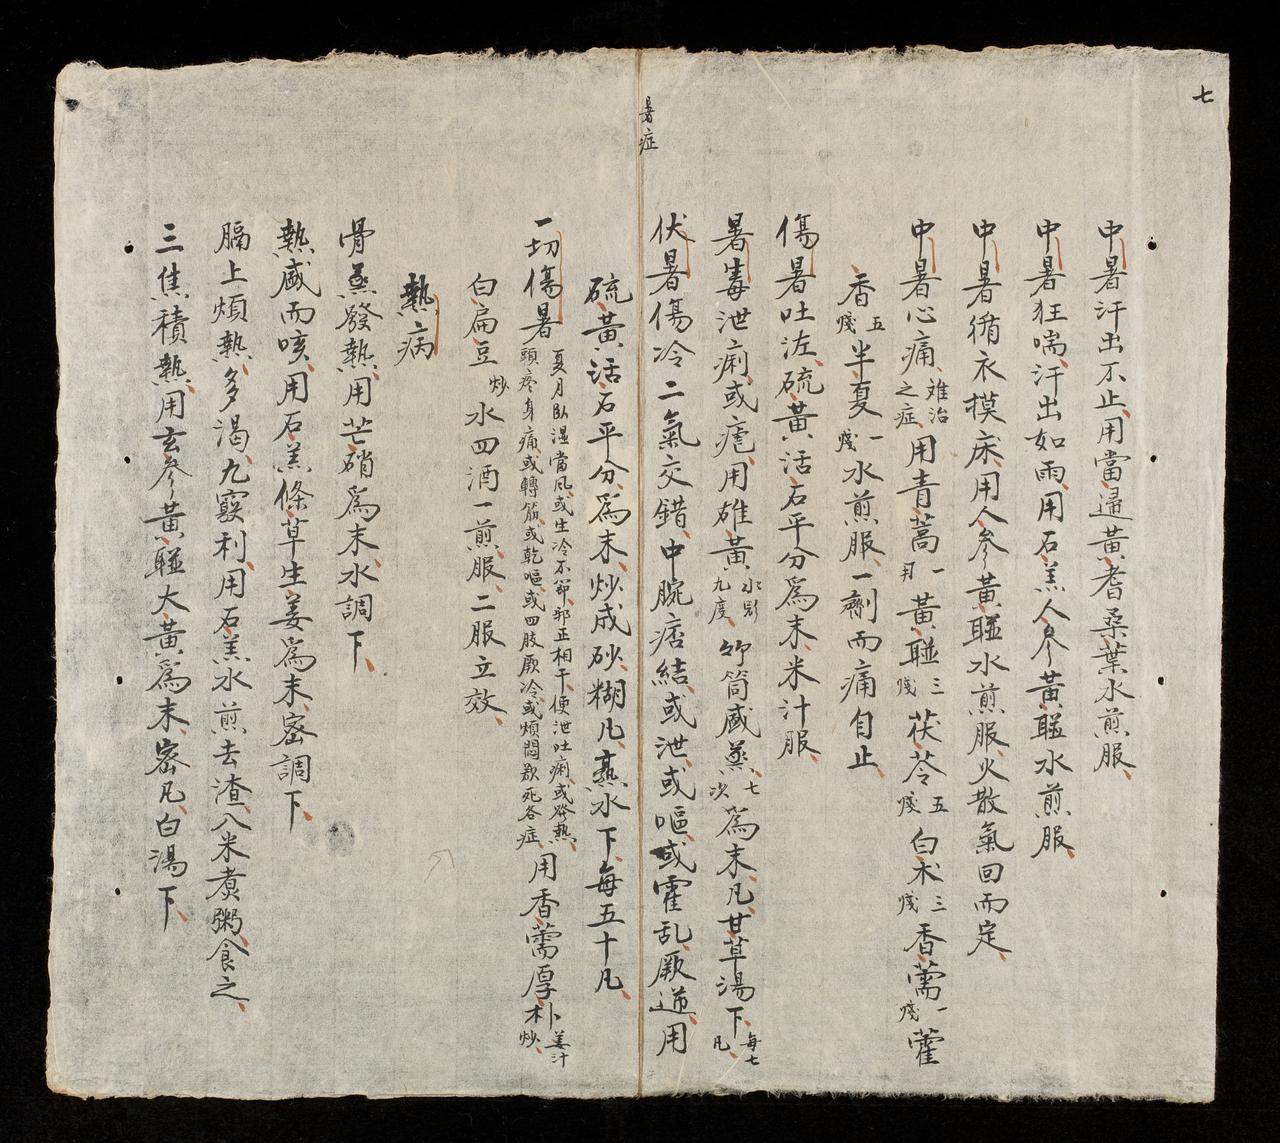 七
中暑汗出不止、用當歸黃耆桑葉水煎服、
中暑狂喘、汗出如雨、用石羔人參黃連水煎服、
中暑循衣摸床、用人參黃連水煎服、火散氣回而定、
中暑心痛、難治之症、用青蒿一月黃連三戔茯苓五戔白朮三戔香薷一戔藿
香五戔半夏一戔水煎服、一劑而痛自止、
傷暑吐泣、硫黃活石平分爲末、米汁服、
暑毒泄痢或瘧、用雄黃水影九度竹筒盛蒸、七次爲末、凡甘草湯下、每七凡、
暑症
伏暑傷冷二氣交錯、中脘痞結、或泄、或嘔、或霍乱厥逆、用
硫黃活石平分、爲末、炒成砂、糊凡、熱水下、每五十凡、
一切傷暑夏月臥濕當風或生冷不節、邪正相干、便泄吐痢、或發熱、頭疼身痛、或轉筋、或乾嘔、或四肢厥冷或煩悶欲死各症、用香薷厚朴姜汁炒、
白扁豆炒水四酒一煎服、二服立效、
熱病
骨蒸發熱、用芒硝爲末、水調下、
熱盛而咳、用石羔條草生姜爲末、密調下、
膈上煩熱、多渴、九竅利用石羔水煎去渣、入米煮粥、食之、
三焦積熱、用玄參黃連大黃爲末、密凡、白湯下、